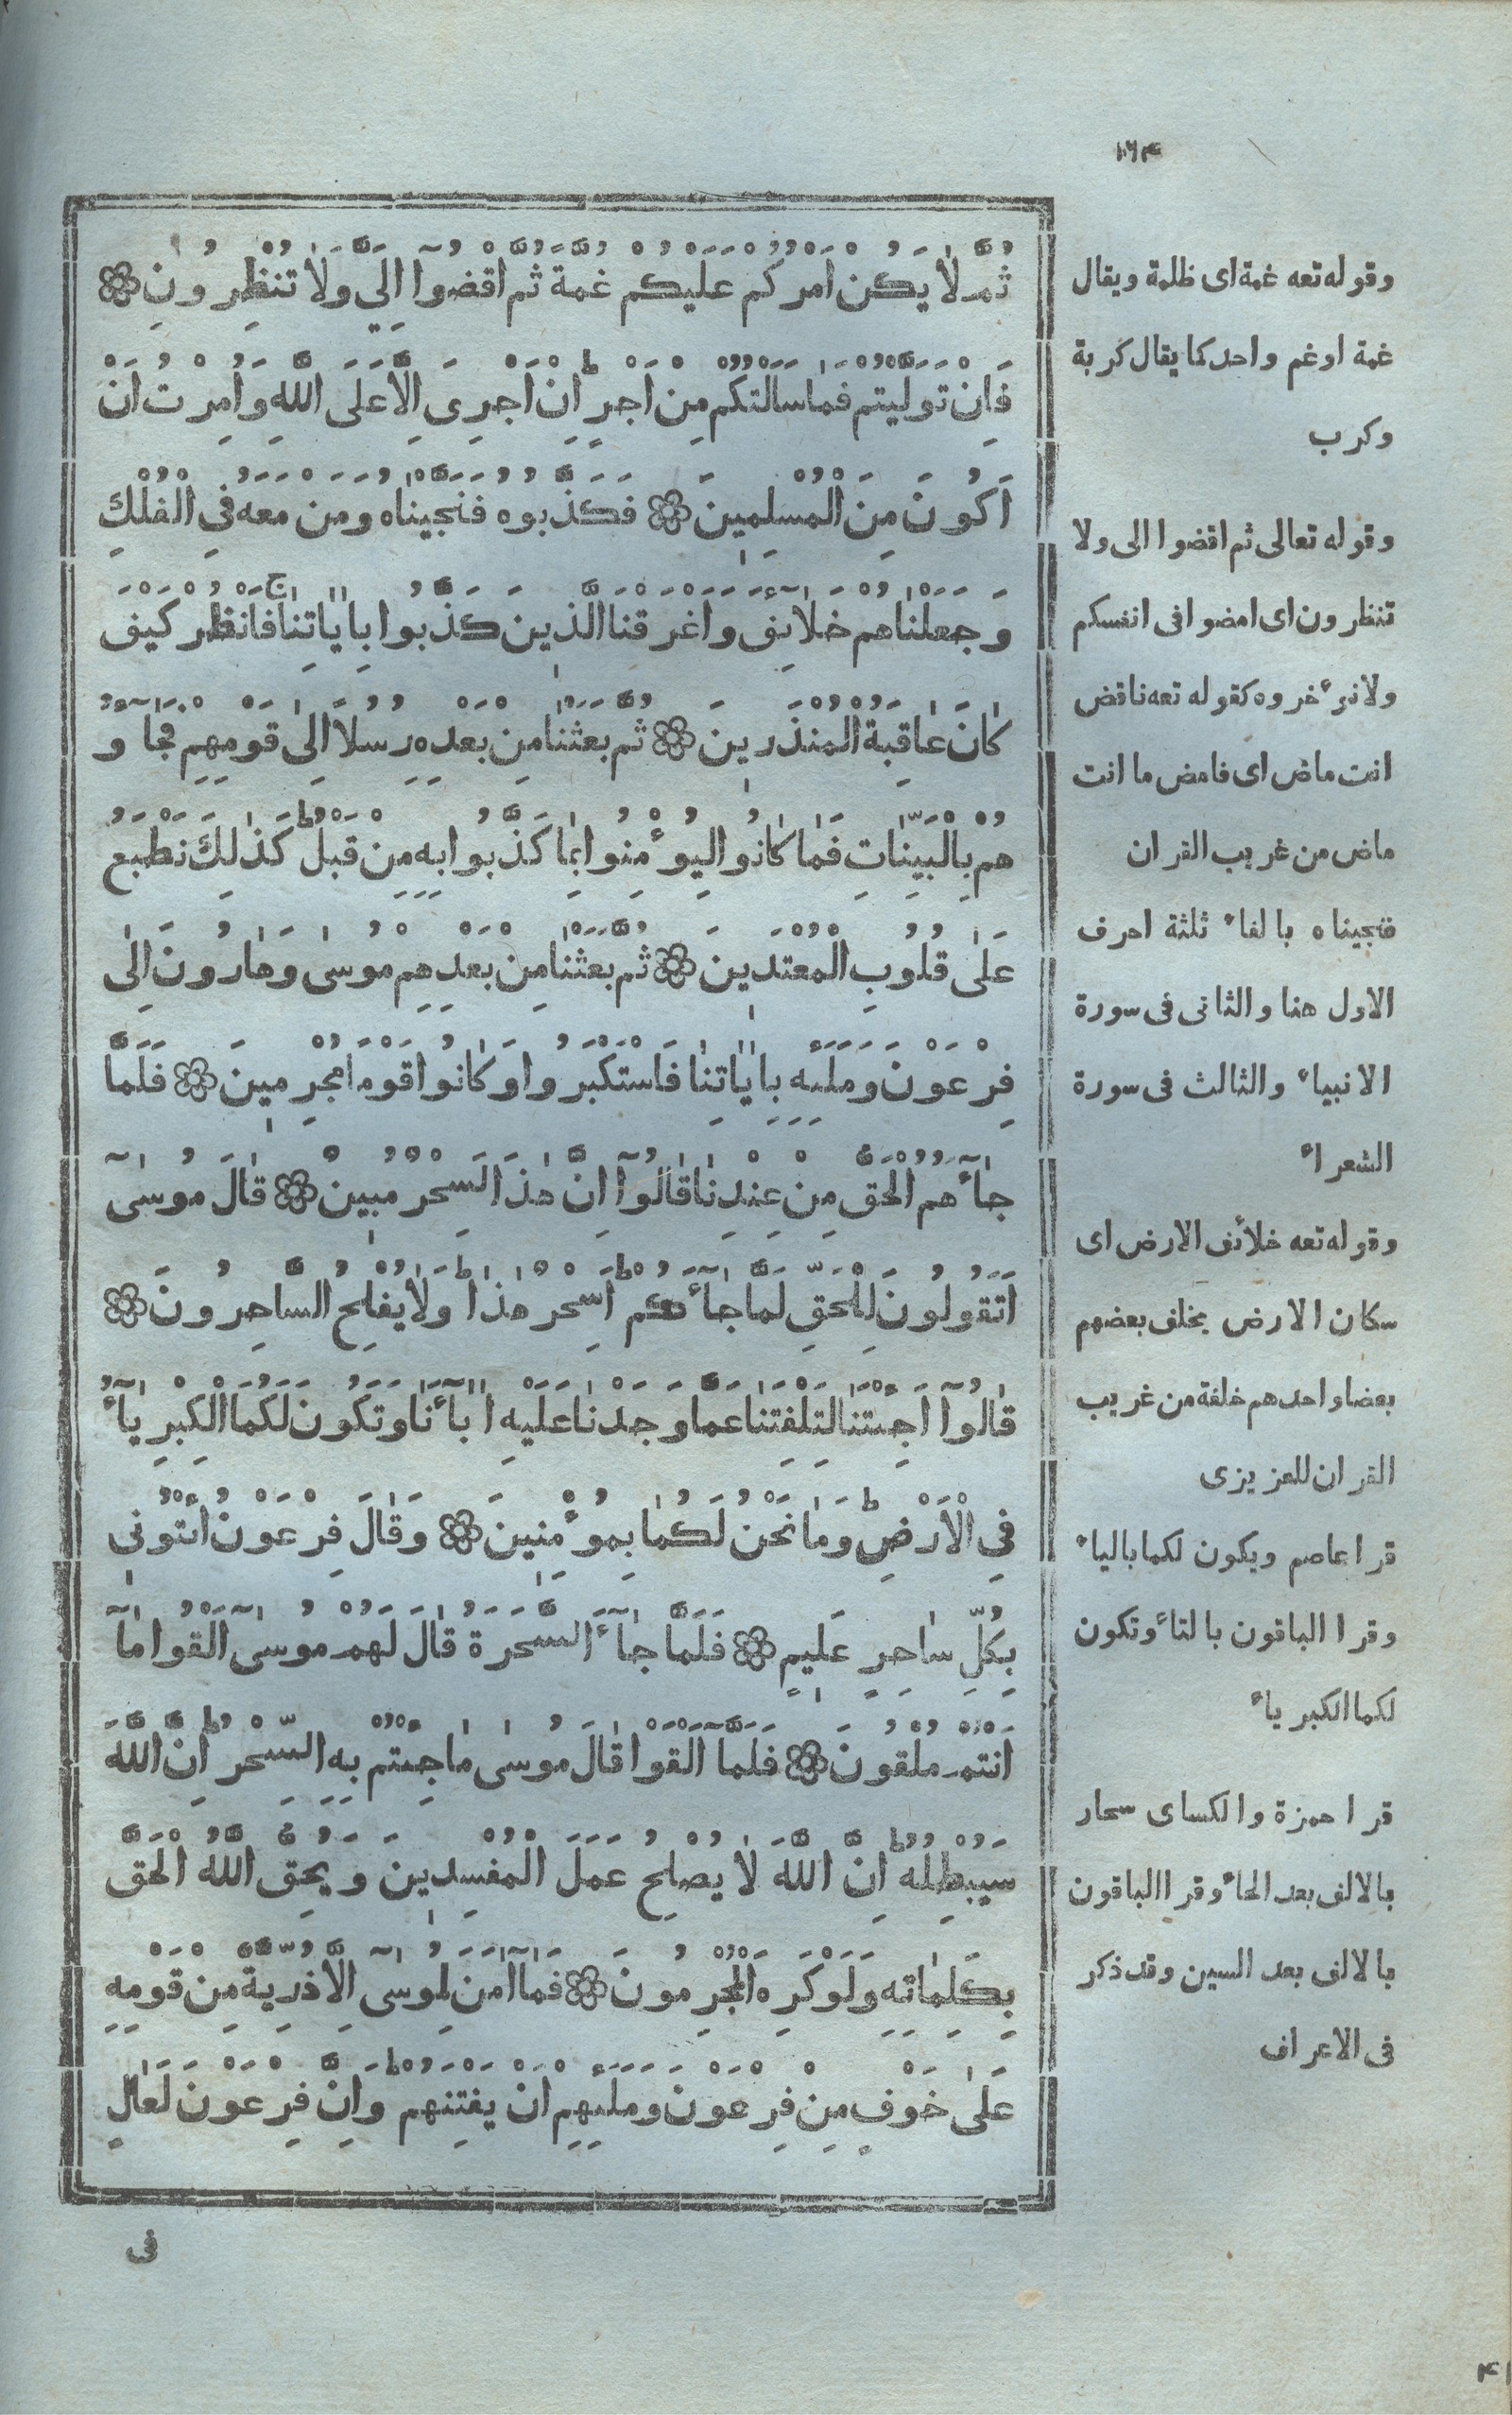 ١٦٤
ثُمَّ لَا يَكُنْ اَمْرُكُمْ عَلَيْكُمْ غُمَّةً ثُمَّ اقْضُوٓا اِلَيَّ وَلَا تُنْظِرُونِ ۞
فَاِنْ تَوَلَّيْتُمْ فَمَا سَاَلْتُكُمْ مِنْ اَجْرٍ ط اِنْ اَجْرِىَ اِلَّا عَلَى اللَّهِ وَاُمِرْتُ اَنْ
اَكُونَ مِنَ الْمُسْلِمِينَ ۞ فَكَذَّبُوهُ فَنَجَّيْنَاهُ وَمَنْ مَعَهُ فِى الْفُلْكِ
وَجَعَلْنَاهُمْ خَلَآئِفَ وَاَغْرَقْنَا الَّذِينَ كَذَّبُوا بِاٰيَاتِنَا ج فَانْظُرْ كَيْفَ
كَانَ عَاقِبَةُ الْمُنْذَرِينَ ۞ ثُمَّ بَعَثْنَا مِنْ بَعْدِهِ رُسُلًا اِلَى قَوْمِهِمْ فَجَآؤُ
هُمْ بِالْبَيِّنَاتِ فَمَا كَانُوا لِيُؤْمِنُوا بِمَا كَذَّبُوا بِهِ مِنْ قَبْلُ ط كَذَلِكَ نَطْبَعُ
عَلَى قُلُوبِ الْمُعْتَدِينَ ۞ ثُمَّ بَعَثْنَا مِنْ بَعْدِهِمْ مُوسَى وَهَارُونَ اِلَى
فِرْعَوْنَ وَمَلَئِهِ بِاٰيَاتِنَا فَاسْتَكْبَرُوا وَكَانُوا قَوْمًا مُجْرِمِينَ ۞ فَلَمَّا
جَآءَهُمُ الْحَقُّ مِنْ عِنْدِنَا قَالُوٓا اِنَّ هَذَا لَسِحْرٌ مُبِينٌ ۞ قَالَ مُوسَىٓ
اَتَقُولُونَ لِلْحَقِّ لَمَّا جَآءَكُمْ ط اَسِحْرٌ هَذَا ط وَلَا يُفْلِحُ السَّاحِرُونَ ۞
قَالُوٓا اَجِئْتَنَا لِتَلْفِتَنَا عَمَّا وَجَدْنَا عَلَيْهِ اٰبَآءَنَا وَتَكُونَ لَكُمَا الْكِبْرِيَآءُ
فِى الْاَرْضِ ط وَمَا نَحْنُ لَكُمَا بِمُؤْمِنِينَ ۞ وَقَالَ فِرْعَوْنُ ائْتُونِى
بِكُلِّ سَاحِرٍ عَلِيمٍ ۞ فَلَمَّا جَآءَ السَّحَرَةُ قَالَ لَهُمْ مُوسَىٓ اَلْقُوا مَآ
اَنْتُمْ مُلْقُونَ ۞ فَلَمَّآ اَلْقَوْا قَالَ مُوسَى مَا جِئْتُمْ بِهِ السِّحْرُ ط اِنَّ اللَّهَ
سَيُبْطِلُهُ ط اِنَّ اللَّهَ لَا يُصْلِحُ عَمَلَ الْمُفْسِدِينَ وَيُحِقُّ اللَّهُ الْحَقَّ
بِكَلِمَاتِهِ وَلَوْ كَرِهَ الْمُجْرِمُونَ ۞ فَمَآ اٰمَنَ لِمُوسَىٓ اِلَّا ذُرِّيَّةٌ مِنْ قَوْمِهِ
عَلَى خَوْفٍ مِنْ فِرْعَوْنَ وَمَلَئِهِمْ اَنْ يَفْتِنَهُمْ ط وَاِنَّ فِرْعَوْنَ لَعَالٍ
فى
وقوله تعه غمة اى ظلمة ويقال
غمة اوغم واحد كما يقال كربة
وكرب
وقوله تعالى ثم اقضوا الى ولا
تنظرون اى امضوا فى انفسكم
ولا تؤخروه كقوله تعه فاقض
انت ماض اى فامض ما انت
ماض من غريب القران
فنجيناه بالفاء ثلثة احرف
الاول هنا والثانى فى سورة
الانبياء والثالث فى سورة
الشعراء
وقوله تعه خلائف الارض اى
سكان الارض يخلف بعضهم
بعضا واحدهم خلفة من غريب
القران للعزيزى
قرا عاصم ويكون لكما بالياء
وقرا الباقون بالتاء وتكون
لكما الكبرياء
قرا حمزة والكساى سحار
بالالف بعد الحاء وقرا الباقون
بالالف بعد السين وقد ذكر
فى الاعراف